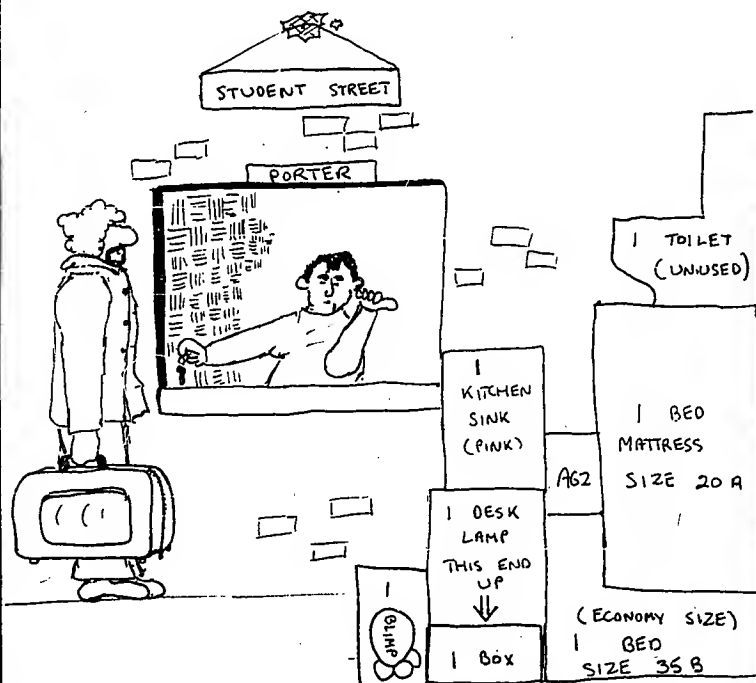 STUDENT STREET
PORTER
1 TOILET
(UNUSED)
1
KITCHEN
SINK
(PINK)
AG2
1 BED
MATTRESS
SIZE 20 A
1 DESK
LAMP
THIS END
UP
1
BLIMP
1 BOX
(ECONOMY SIZE)
1 BED
SIZE 35 B